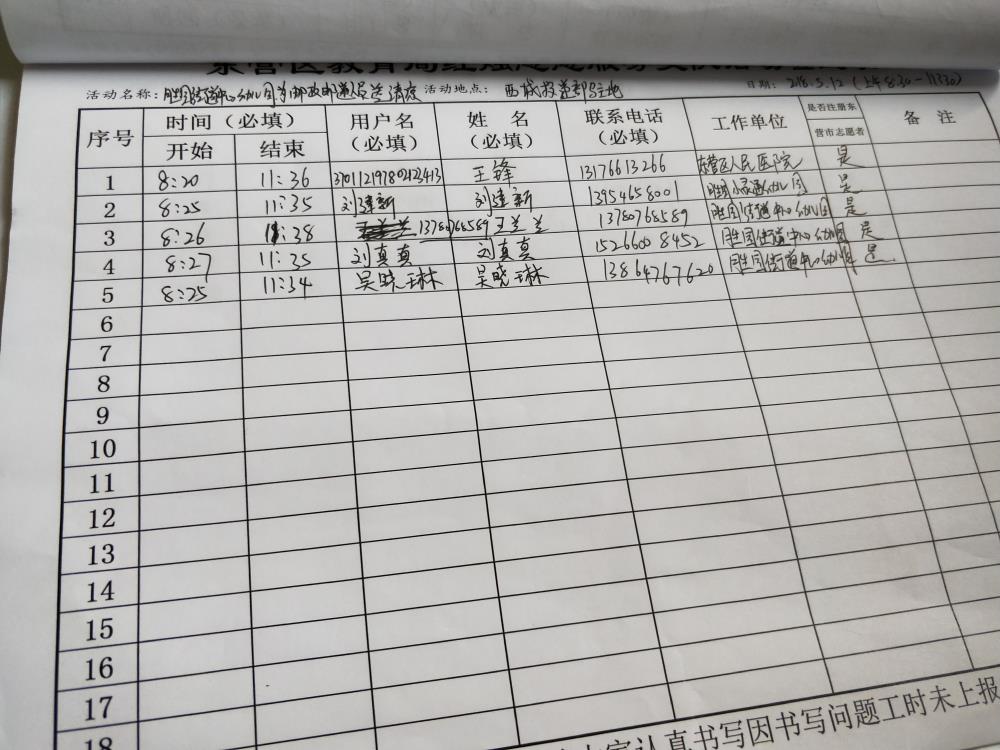 活动名称：胜园街道中心幼儿园为邮政邮递员送清凉 活动地点：西城投递部驻地 日期：2018.5.12（上午8:30-11:30）
序号 时间（必填） 用户名（必填） 姓名（必填） 联系电话（必填） 工作单位 是否注册东营市志愿者 备注
开始 结束
1 8:20 11:36 王锋 13176613266 东营区人民医院 是
2 8:25 11:35 刘建新 刘建新 13954658001 是
3 8:26 11:38 13780768589 王兰兰 13780768589 胜园街道中心幼儿园 是
4 8:27 11:35 刘真真 刘真真 15266008452 胜园街道中心幼儿园 是
5 8:25 11:34 吴晓琳 吴晓琳 13864767620 胜园街道中心幼儿园 是
6
7
8
9
10
11
12
13
14
15
16
17
18
认真书写因书写问题工时未上报